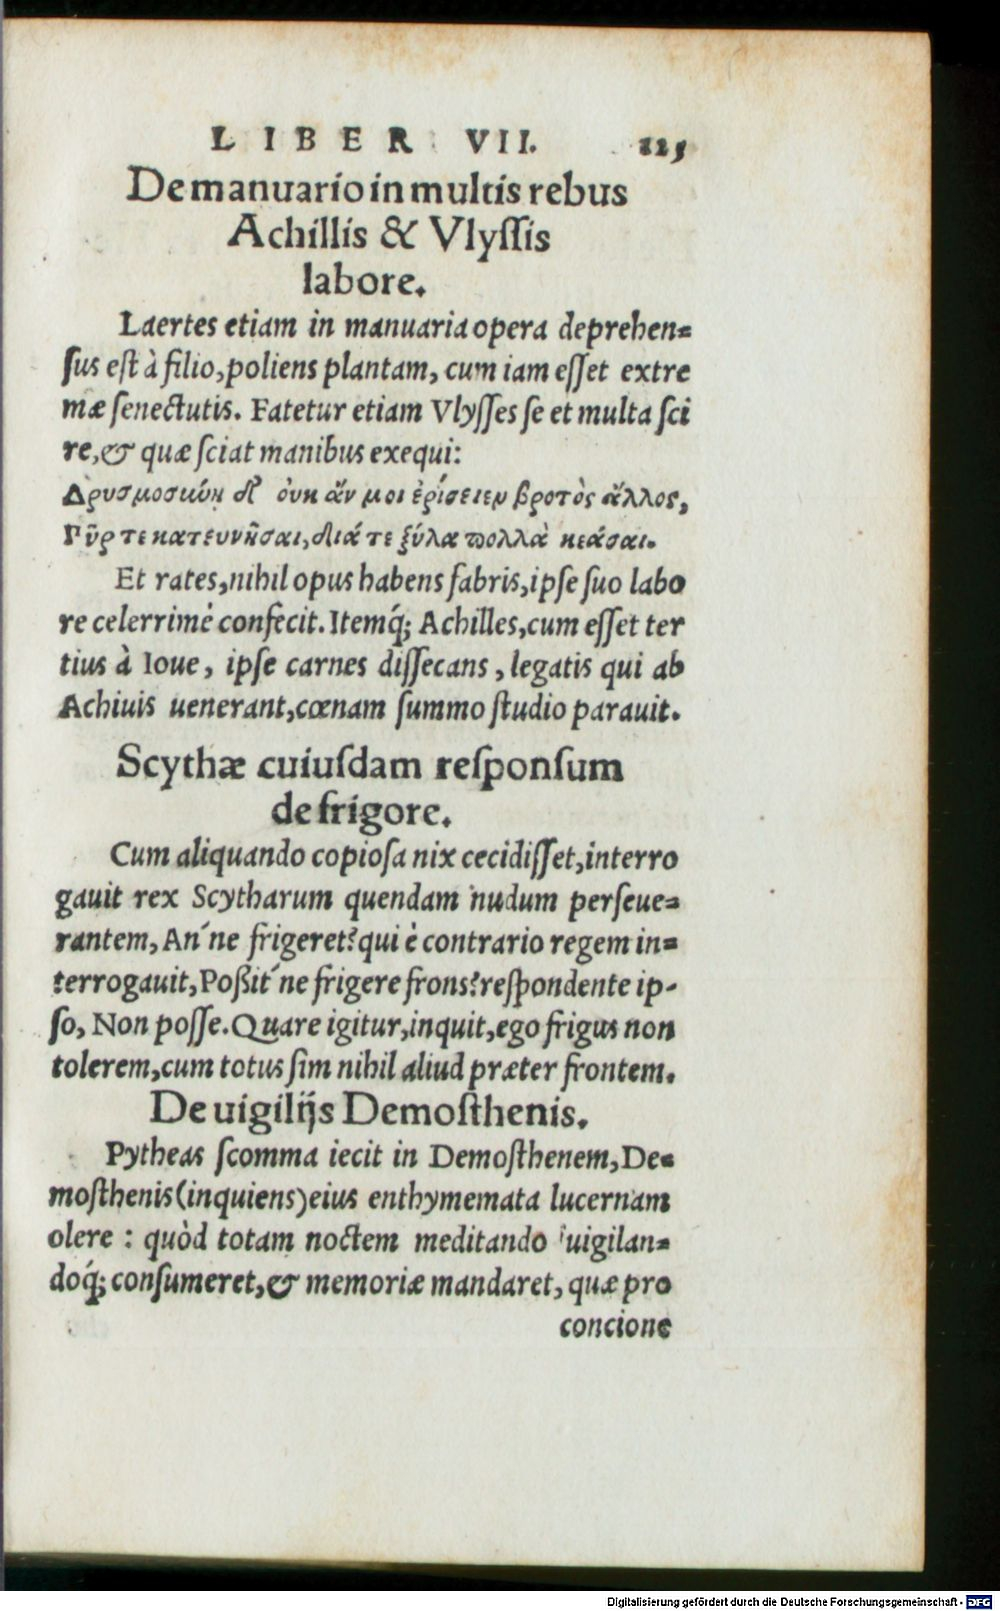 LIBER VII. 225
De manuario in multis rebus
Achillis & Vlyſſis
labore.
Laertes etiam in manuaria opera deprehen=
ſus eſt à filio, poliens plantam, cum iam eſſet extre
mæ ſenectutis. Fatetur etiam Vlyſſes ſe et multa ſci
re, & quæ ſciat manibus exequi:
Δρυσμοσκώη δ' ὀυκ ἄν μοι ἐρίσειεν βροτὸς ἄλλος,
Γῦρ τε κατευνῆσαι, διά τε ξύλα πολλὰ κεάσαι.
Et rates, nihil opus habens fabris, ipſe ſuo labo
re celerrimè confecit. Itemq́; Achilles, cum eſſet ter
tius à Ioue, ipſe carnes diſſecans, legatis qui ab
Achiuis uenerant, cœnam ſummo ſtudio parauit.
Scythæ cuiuſdam reſponſum
de frigore.
Cum aliquando copioſa nix cecidiſſet, interro
gauit rex Scytharum quendam nudum perſeue=
rantem, An'ne frigeret? qui è contrario regem in=
terrogauit, Poßit'ne frigere frons? reſpondente ip-
ſo, Non poſſe. Quare igitur, inquit, ego frigus non
tolerem, cum totus ſim nihil aliud præter frontem.
De uigilijs Demoſthenis.
Pytheas ſcomma iecit in Demoſthenem, De=
moſthenis (inquiens) eius enthymemata lucernam
olere : quòd totam noctem meditando uigilan=
doq́; conſumeret, & memoriæ mandaret, quæ pro
concione
Digitalisierung gefördert durch die Deutsche Forschungsgemeinschaft - DFG